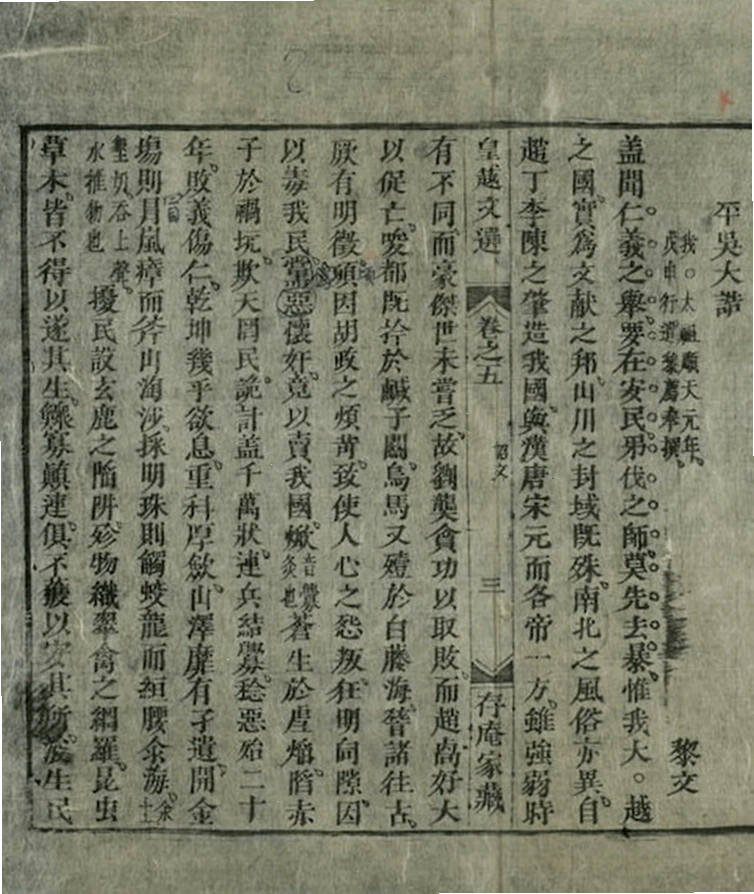 平吳大誥
我太祖順天元年
戊申行遣黎廌奉撰
黎文
盖聞仁義之舉要在安民弔伐之師莫先去暴惟我大越
之國實爲文献之邦山川之封域既殊南北之風俗亦異自
趙丁李陳之肇造我國與漢唐宋元而各帝一方雖強弱時
皇越文選 卷之五 詔文 三 存庵家藏
有不同而豪傑世未嘗乏故劉龑貪功以取敗而趙卨好大
以促亡唆都既擒於鹹子關烏馬又殪於白藤海稽諸往古
厥有明徵頃因胡政之煩苛致使人心之怨叛狂明伺隙因
以毒我民黨惡懷奸竟以賣我國焮蒼生於虐焰陷赤
子於禍坑欺天罔民詭計盖千萬狀連兵結釁稔惡殆二十
年敗義傷仁乾坤幾乎欲息重科厚歛山澤靡有孑遺開金
塲則冒嵐瘴而斧山淘沙採明珠則觸蛟龍而絙腰汆海
擾民設玄鹿之陷阱殄物織翠禽之網羅昆虫
草木皆不得以遂其生鰥寡顛連俱不獲以安其所浚生民